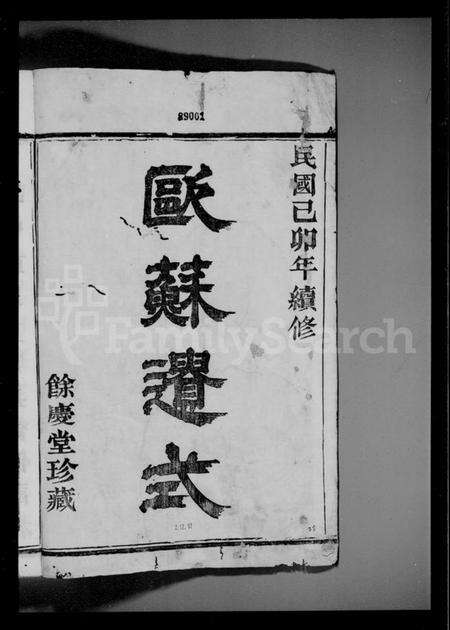 89001
民國己卯年續修
歐蘇遺式
餘慶堂珍藏
FamilySearch